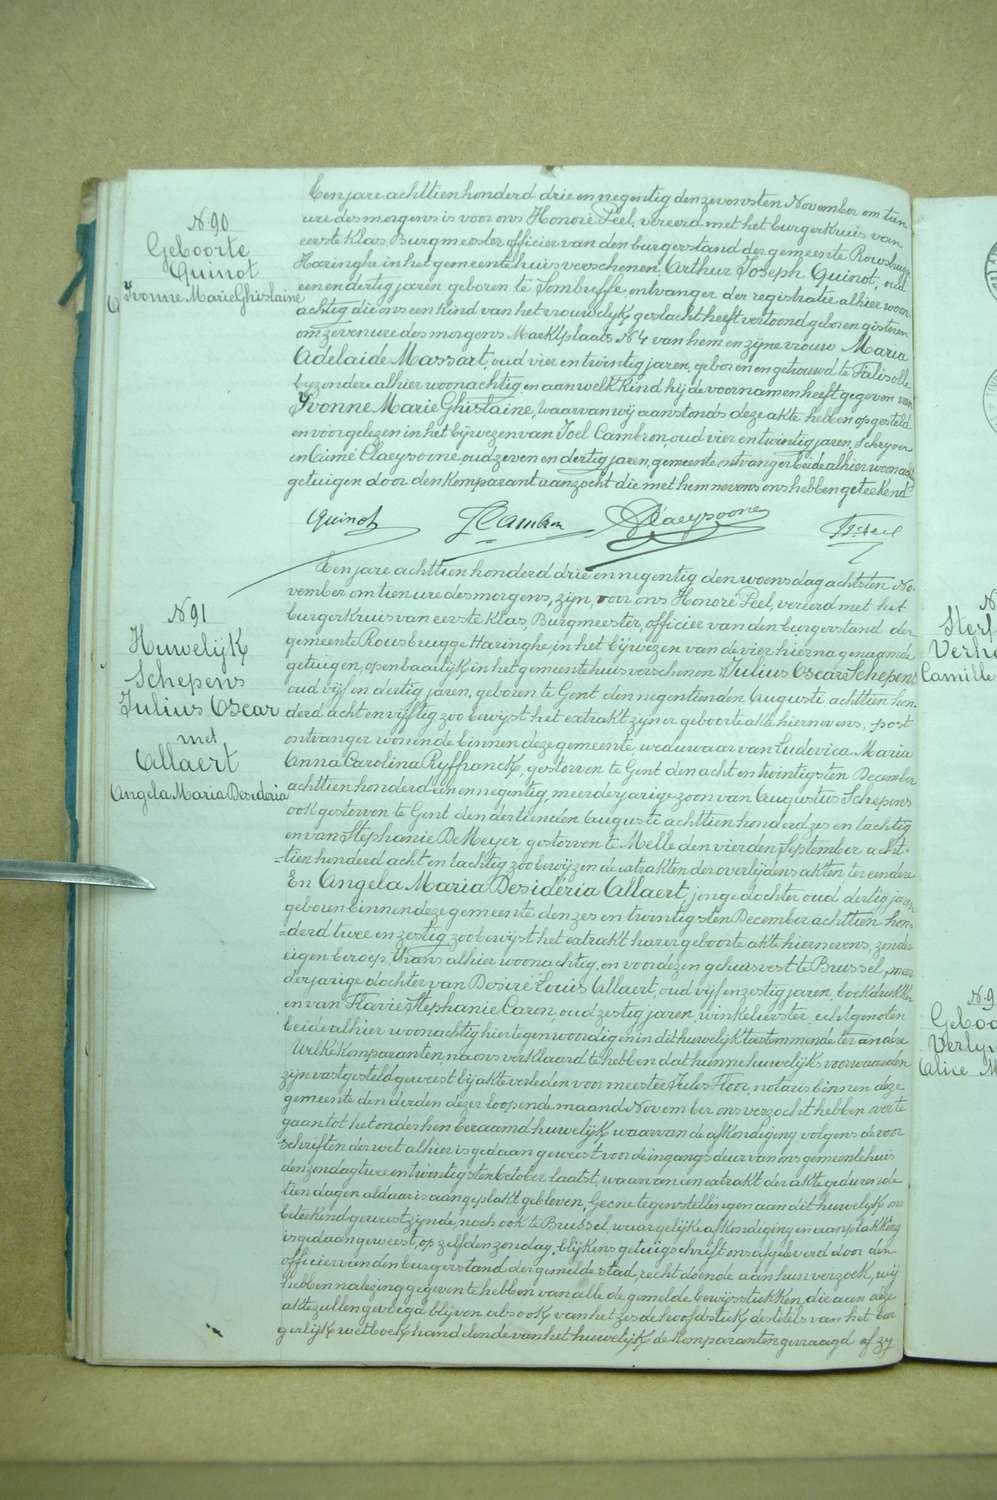 N 90
Geboorte
Quinot
Yvonne Marie Ghislaine
Een jare achttien honderd drie en negentig den zevensten November om tien
ure des morgens is voor ons Honoré Peel, vereerd met het burgerkruis van
eerste klas, Burgmeester officier van den burgerstand der gemeente Rousbrugge
Haringhe in het gemeentehuis verschenen, Arthur Joseph Quinot, oud
een en dertig jaren geboren te Sombreffe, ontvanger der registratie alhier woon-
achtig die ons een kind van het vrouwelijk geslacht heeft vertoond geboren gisteren
om zeven ure des morgens Marktplaats N 4 van hem en zijne vrouw Maria
Adelaïde Massart, oud vier en twintig jaren, geboren en getrouwd te Falisolle
byzondere alhier woonachtig en aan welk kind hij de voornamen heeft gegeven van
Yvonne Marie Ghislaine, waarvan wij aanstonds deze akte hebben opgesteld
en voorgelezen in het bijwezen van Joel Cambron oud vier en twintig jaren, Schryver
en Aimé Claeysoone, oud zeven en dertig jaren, gemeente ontvanger beide alhier woonachtig
getuigen door den komparant aanzocht die met hem nevens ons hebben geteekend
Quinot J Cambron Claeysoone H. Peel
N 91
Huwelijk
Schepens
Julius Oscar
met
Allaert
Angela Maria Desideria
Een jare achttien honderd drie en negentig den woensdag achtsten No-
vember om tien ure des morgens, zijn voor ons Honoré Peel, vereerd met het
burgerkruis van eerste klas, Burgmeester, officier van den burgerstand der
gemeente Rousbrugge Haringhe, in het bijwezen van de vier hierna genaamde
getuigen, openbaarlijk in het gemeentehuis verschenen Julius Oscar Schepens
oud vijf en dertig jaren, geboren te Gent den negentienden Augusti achttien hon-
derd acht en vijftig zoo bewijst het extrakt zijner geboorte akte hiernevens, post
ontvanger wonende binnen deze gemeente, weduwaar van Ludovica Maria
Anna Carolina Ryffranck, gestorven te Gent den acht en twintigsten December
achttien honderd een en negentig, meerderjarige zoon van Augustus Schepens
ook gestorven te Gent den dertienden Augusti achttien honderd zes en tachtig
en van Stephanie De Meyer gestorven te Melle den vierden September acht-
tien honderd acht en tachtig zoo bewijzen de extrakten der overlijdens akten ter eendere
En Angela Maria Desideria Allaert, jonge dochter oud dertig jaren
geboren binnen deze gemeente den zes en twintigsten December achttien hon-
derd twee en zestig zoo bewijst het extrakt harer geboorte akte hiernevens, zonder
eigen beroep, thans alhier woonachtig, en voordezen gehuisvest te Brussel, meer
derjarige dochter van Désiré Louis Allaert, oud vijf en zestig jaren, boekdrukker
en van Flavie Stephanie Caron, oud zestig jaren, winkelierster, echtgenoten
beide alhier woonachtig hier tegenwoordig en in dit huwelijk toestemmende ter andere
Welke komparanten na ons verklaard te hebben dat hunne huwelijks voorwaarden
zijn vastgesteld geweest bij akte verleden voor meester Jules Floor, notaris binnen deze
gemeente den derden dezer loopende maand November ons verzocht hebben over te
gaan tot het onder hen beraamd huwelijk waarvan de afkondiging volgens de voor
schriften der wet alhier is gedaan geweest voor de ingangsdeur van ons gemeentehuis
den zondag twee en twintigsten October laatst, waarvan een extrakt der akte gedurende
tien dagen aldaar is aangeplakt gebleven. Geene tegenstellingen aan dit huwelijk ons
beteekend geweest zijnde, noch ook te Brussel, waar gelijke afkondiging en aanplakking
is gedaan geweest, op zelfden zondag, blijkens getuigschrift ons afgeleverd door den
officier van den burgerstand der gemelde stad, recht doende aan hun verzoek, wij
hebben na lezing gegeven te hebben van alle de gemelde bewijsstukken, die aan deze
akte zullen gevoegd blijven, alsook van het zesde hoofdstuk des titels van het bur
gerlijk wetboek handelende van het huwelijk de komparanten gevraagd of zy
N
Sterf
Verh
Camille
N 9
Geboo
Verly
Alice M